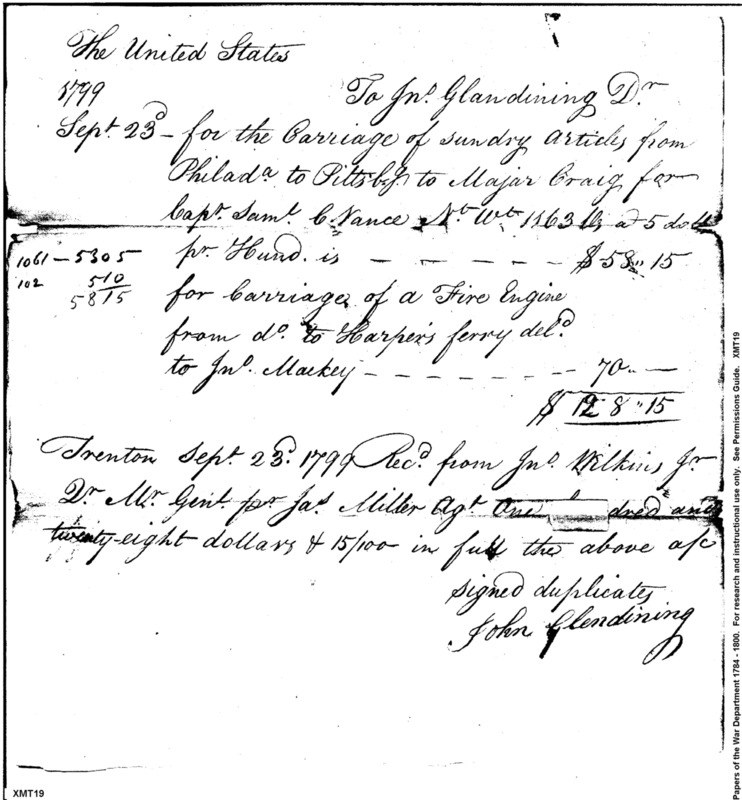 The United States
1799 To Jno. Glandining Dr.
Sept. 23d - for the Carriage of sundry articles from
Philada. to Pittsbg. to Major Craig for
Capt. Saml. C Vance Nt. Wt. 1163 lb a 5 doll
1061 - 5305 pr. Hund. is - - - - - $ 58 " 15
102 510
5815
for Carriage of a Fire Engine
from do. to Harper's ferry deld.
to Jno. Mackey - - - - - - 70 " -
$ 128 " 15
Trenton Sept. 23d. 1799 Recd. from Jno. Wilkins Jr.
Qr. Mr. Genl. pr Jas. Miller Agt. One dred and
twenty-eight dollars & 15/100 in full the above a/c
signed duplicates
John Glendining
XMT19
Papers of the War Department 1784 - 1800. For research and instructional use only. See Permissions Guide. XMT19